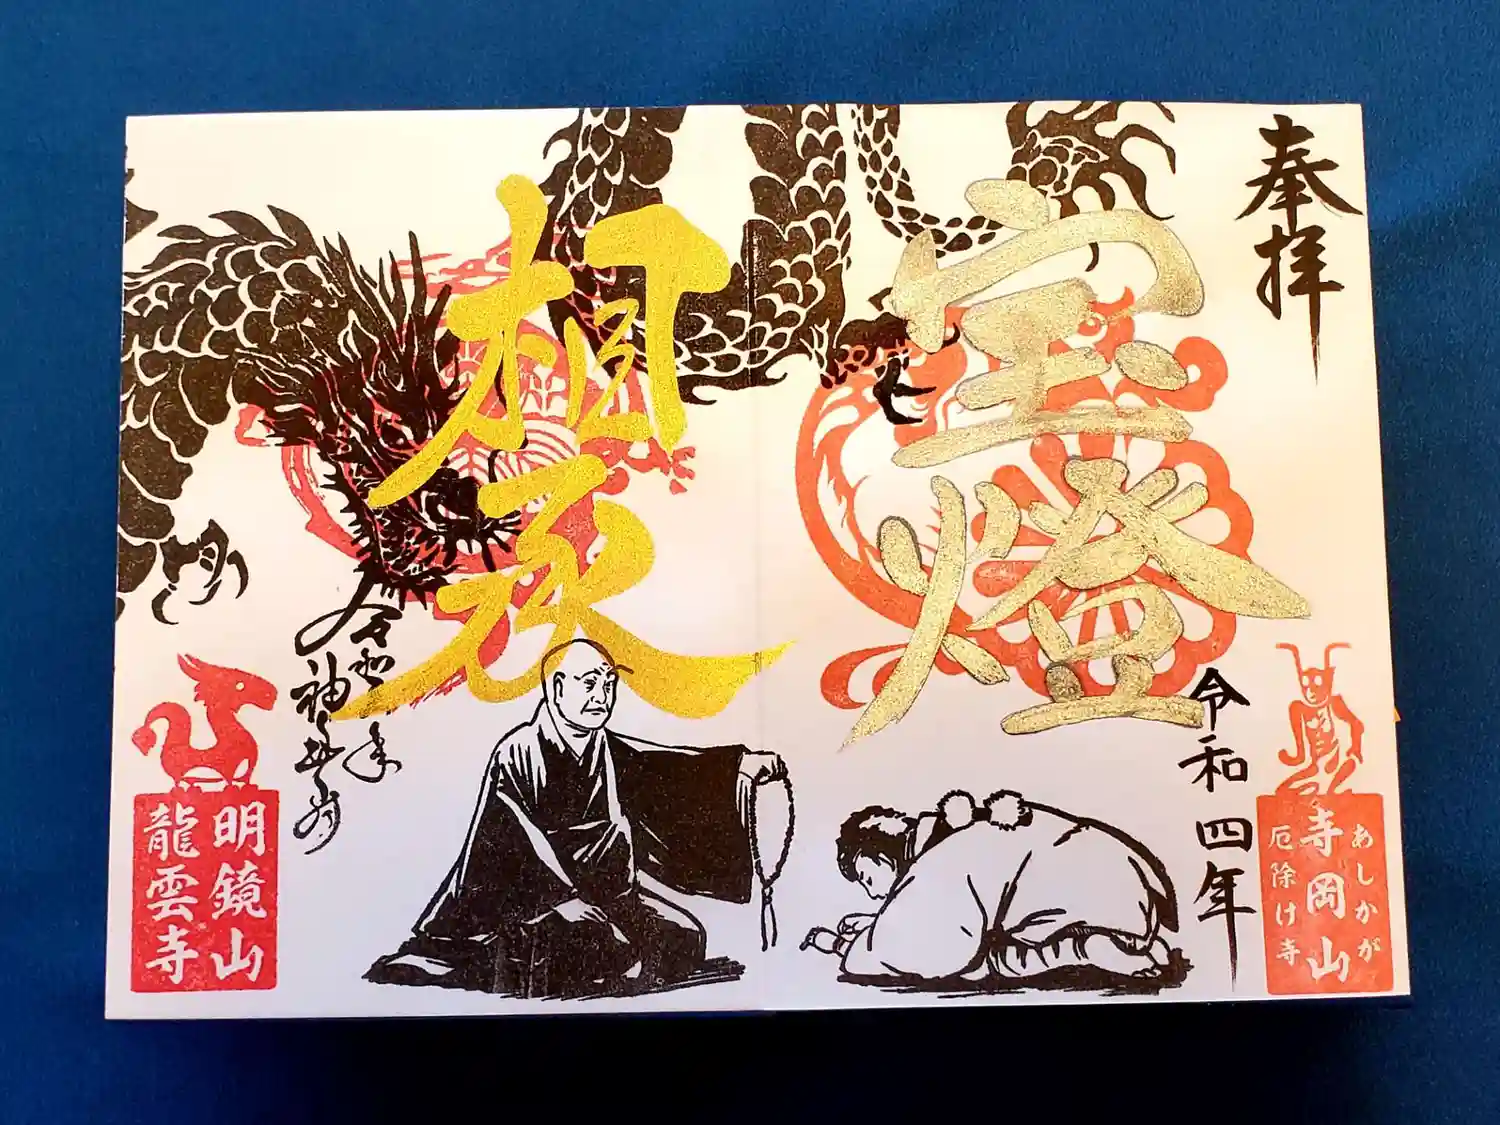 奉拝
宝燈
令和四年
あしかが
寺岡山
厄除け寺
相承
令和四年
神無月
明鏡山
龍雲寺